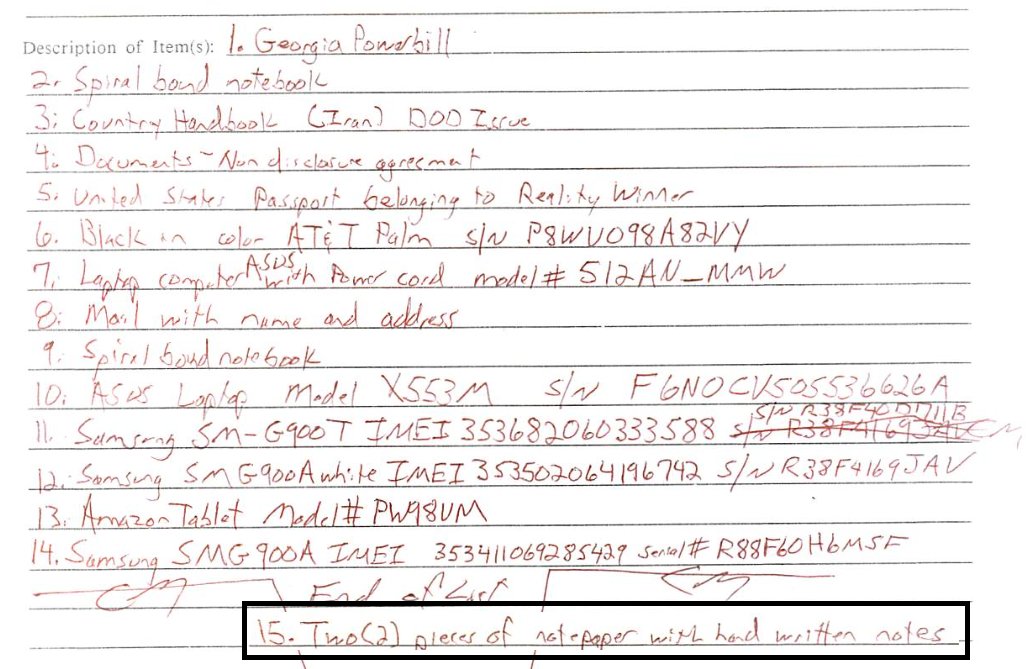 Description of Item(s): 1. Georgia Powerbill
2. Spiral bound notebook
3: Country Handbook (Iran) DOD Issue
4: Documents - Non disclosure agreement
5. United States Passport belonging to Reality Winner
6. Black in color AT&T Palm s/N P8WU098A82VY
7. Laptop computer ASUS with Power cord model# 512AN_MMW
8: Mail with name and address
9. Spiral bound notebook
10. ASUS Laptop Model X553M s/N F6N0CV505536626A
S/N R38F40D1711B
11. Samsung SM-G900T IMEI 353682060333588 s/N R38F4169JAV
12. Samsung SMG900A white IMEI 353502064196742 S/N R38F4169JAV
13. Amazon Tablet Model# PW98VM
14. Samsung SMG900A IMEI 353411069285429 serial# R88F60H6MSF
End of List
15. Two(2) pieces of notepaper with hand written notes